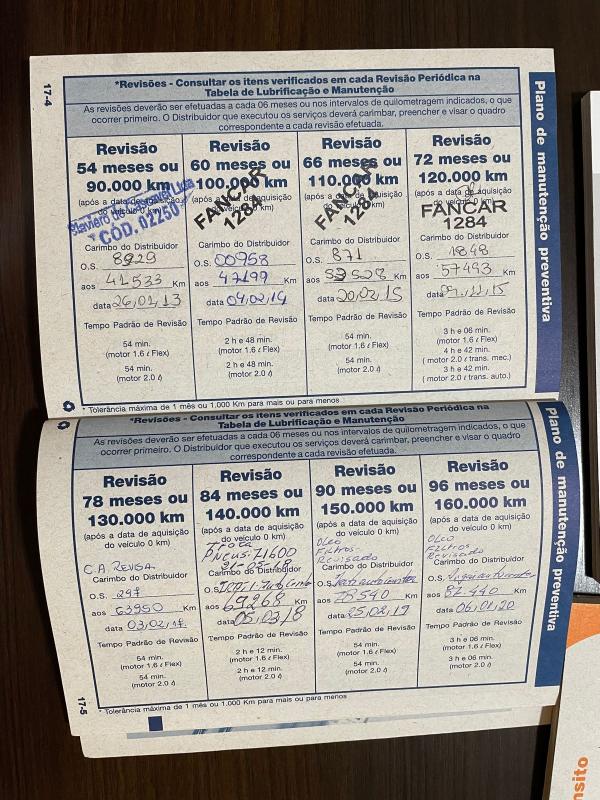 17-4
*Revisões - Consultar os itens verificados em cada Revisão Periódica na
Tabela de Lubrificação e Manutenção
As revisões deverão ser efetuadas a cada 06 meses ou nos intervalos de quilometragem indicados, o que
ocorrer primeiro. O Distribuidor que executou os serviços deverá carimbar, preencher e visar o quadro
correspondente a cada revisão efetuada.
Revisão
54 meses ou
90.000 km
(após a data de aquisição
do veículo 0 km)
CÓD. 02250
Carimbo do Distribuidor
O.S. 8929
aos 41533 Km
data 26,01,13
Tempo Padrão de Revisão
54 min.
(motor 1.6 ℓ Flex)
54 min.
(motor 2.0 ℓ)
Revisão
60 meses ou
100.000 km
(após a data de aquisição
do veículo 0 km)
FANCAR
1284
Carimbo do Distribuidor
O.S. 00958
aos 47199 Km
data 04,02,14
Tempo Padrão de Revisão
2 h e 48 min.
(motor 1.6 ℓ Flex)
2 h e 48 min.
(motor 2.0 ℓ)
Revisão
66 meses ou
110.000 km
(após a data de aquisição
do veículo 0 km)
FANCAR
1284
Carimbo do Distribuidor
O.S. 871
aos 53528 Km
data 20,02,15
Tempo Padrão de Revisão
54 min.
(motor 1.6 ℓ Flex)
54 min.
(motor 2.0 ℓ)
Revisão
72 meses ou
120.000 km
(após a data de aquisição
do veículo 0 km)
FANCAR
1284
Carimbo do Distribuidor
O.S. 1848
aos 57493 Km
data 11,15
Tempo Padrão de Revisão
3 h e 06 min.
(motor 1.6 ℓ Flex)
4 h e 42 min.
( motor 2.0 ℓ trans. mec.)
3 h e 42 min.
( motor 2.0 ℓ trans. auto.)
* Tolerância máxima de 1 mês ou 1.000 Km para mais ou para menos
Plano de manutenção preventiva
*Revisões - Consultar os itens verificados em cada Revisão Periódica na
Tabela de Lubrificação e Manutenção
As revisões deverão ser efetuadas a cada 06 meses ou nos intervalos de quilometragem indicados, o que
ocorrer primeiro. O Distribuidor que executou os serviços deverá carimbar, preencher e visar o quadro
correspondente a cada revisão efetuada.
Revisão
78 meses ou
130.000 km
(após a data de aquisição
do veículo 0 km)
C.A.
Carimbo do Distribuidor
O.S. 297
aos 63950 Km
data 03,02,17
Tempo Padrão de Revisão
54 min.
(motor 1.6 ℓ Flex)
54 min.
(motor 2.0 ℓ)
Revisão
84 meses ou
140.000 km
(após a data de aquisição
do veículo 0 km)
Troca
Pneus: 71600
Carimbo do Distribuidor
O.S.
aos 69268 Km
data 05,03,18
Tempo Padrão de Revisão
2 h e 12 min.
(motor 1.6 ℓ Flex)
2 h e 12 min.
(motor 2.0 ℓ)
Revisão
90 meses ou
150.000 km
(após a data de aquisição
do veículo 0 km)
Oleo
Filtros
Revisado
Carimbo do Distribuidor
O.S.
aos 78540 Km
data 25,02,19
Tempo Padrão de Revisão
54 min.
(motor 1.6 ℓ Flex)
54 min.
(motor 2.0 ℓ)
Revisão
96 meses ou
160.000 km
(após a data de aquisição
do veículo 0 km)
Oleo
Filtros
Revisado
Carimbo do Distribuidor
O.S.
aos 82.440 Km
data 06,01,20
Tempo Padrão de Revisão
3 h e 06 min.
(motor 1.6 ℓ Flex)
3 h e 06 min.
(motor 2.0 ℓ)
* Tolerância máxima de 1 mês ou 1.000 Km para mais ou para menos
17-5
Plano de manutenção preventiva
nsito